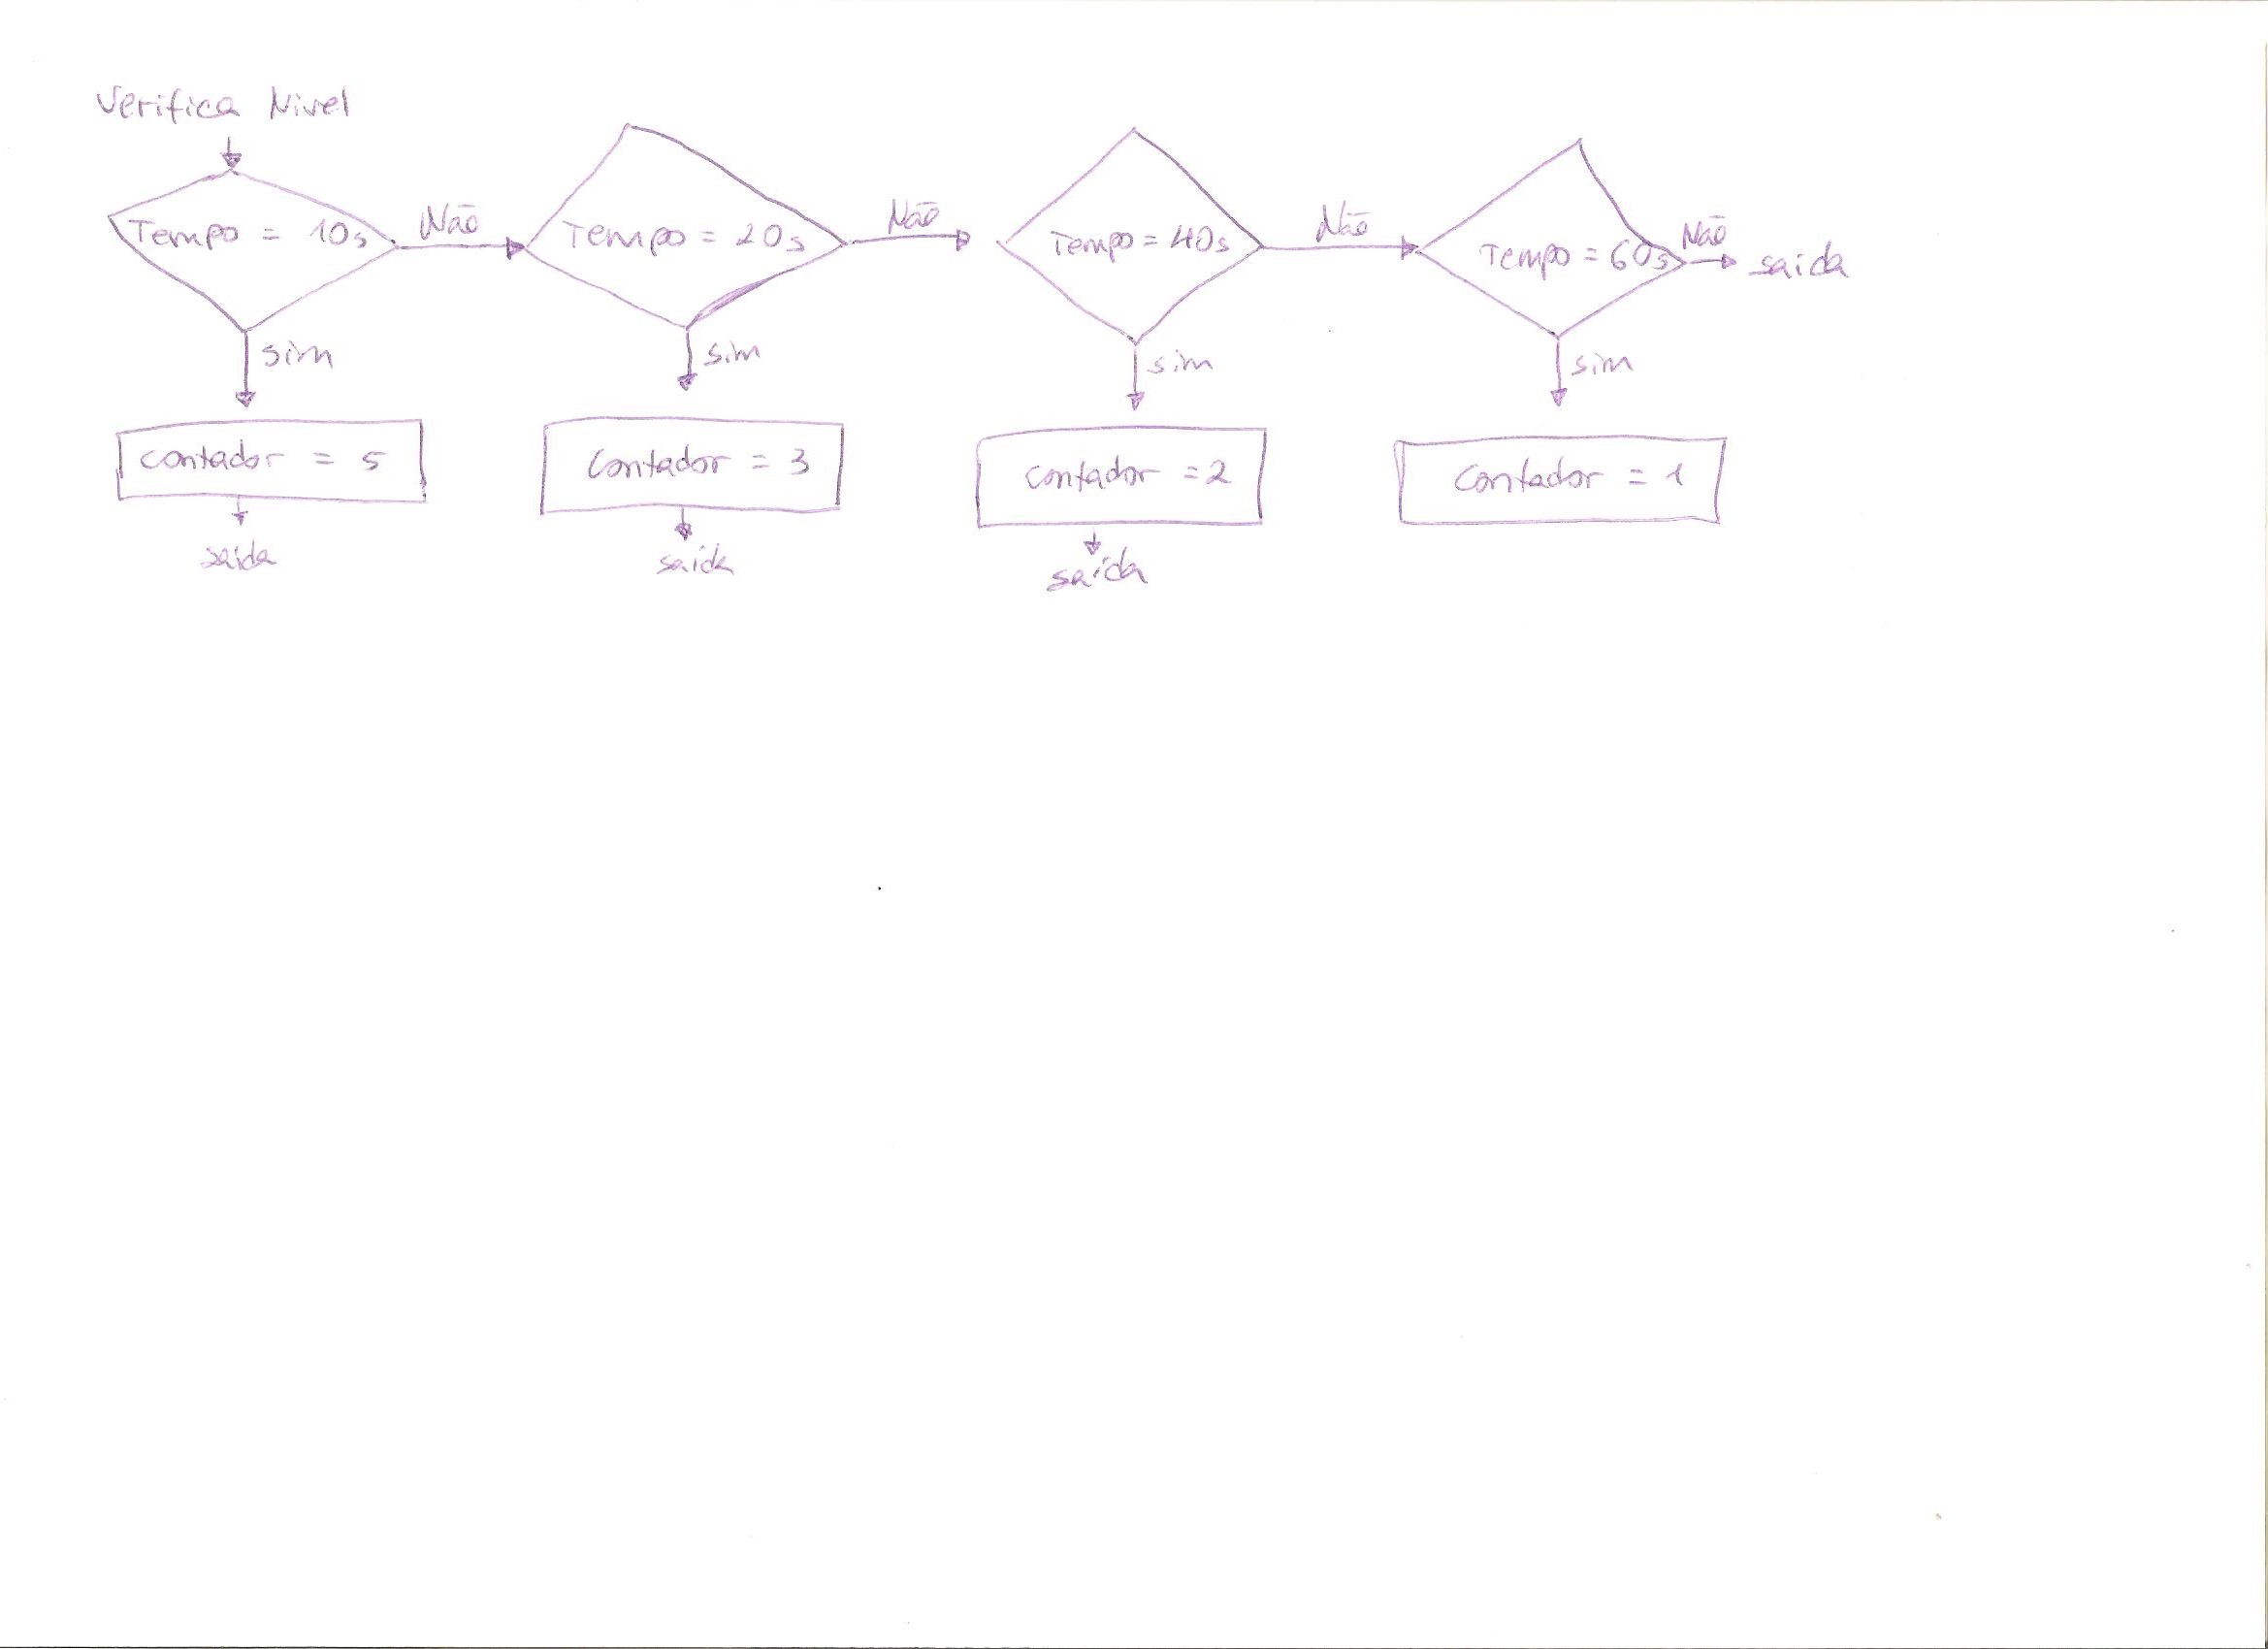 Verifica Nivel
Tempo = 10s
Não
Tempo = 20s
Não
Tempo = 40s
Não
Tempo = 60s
Não
saida
sim
sim
sim
sim
contador = 5
Contador = 3
contador = 2
Contador = 1
saida
saida
saida